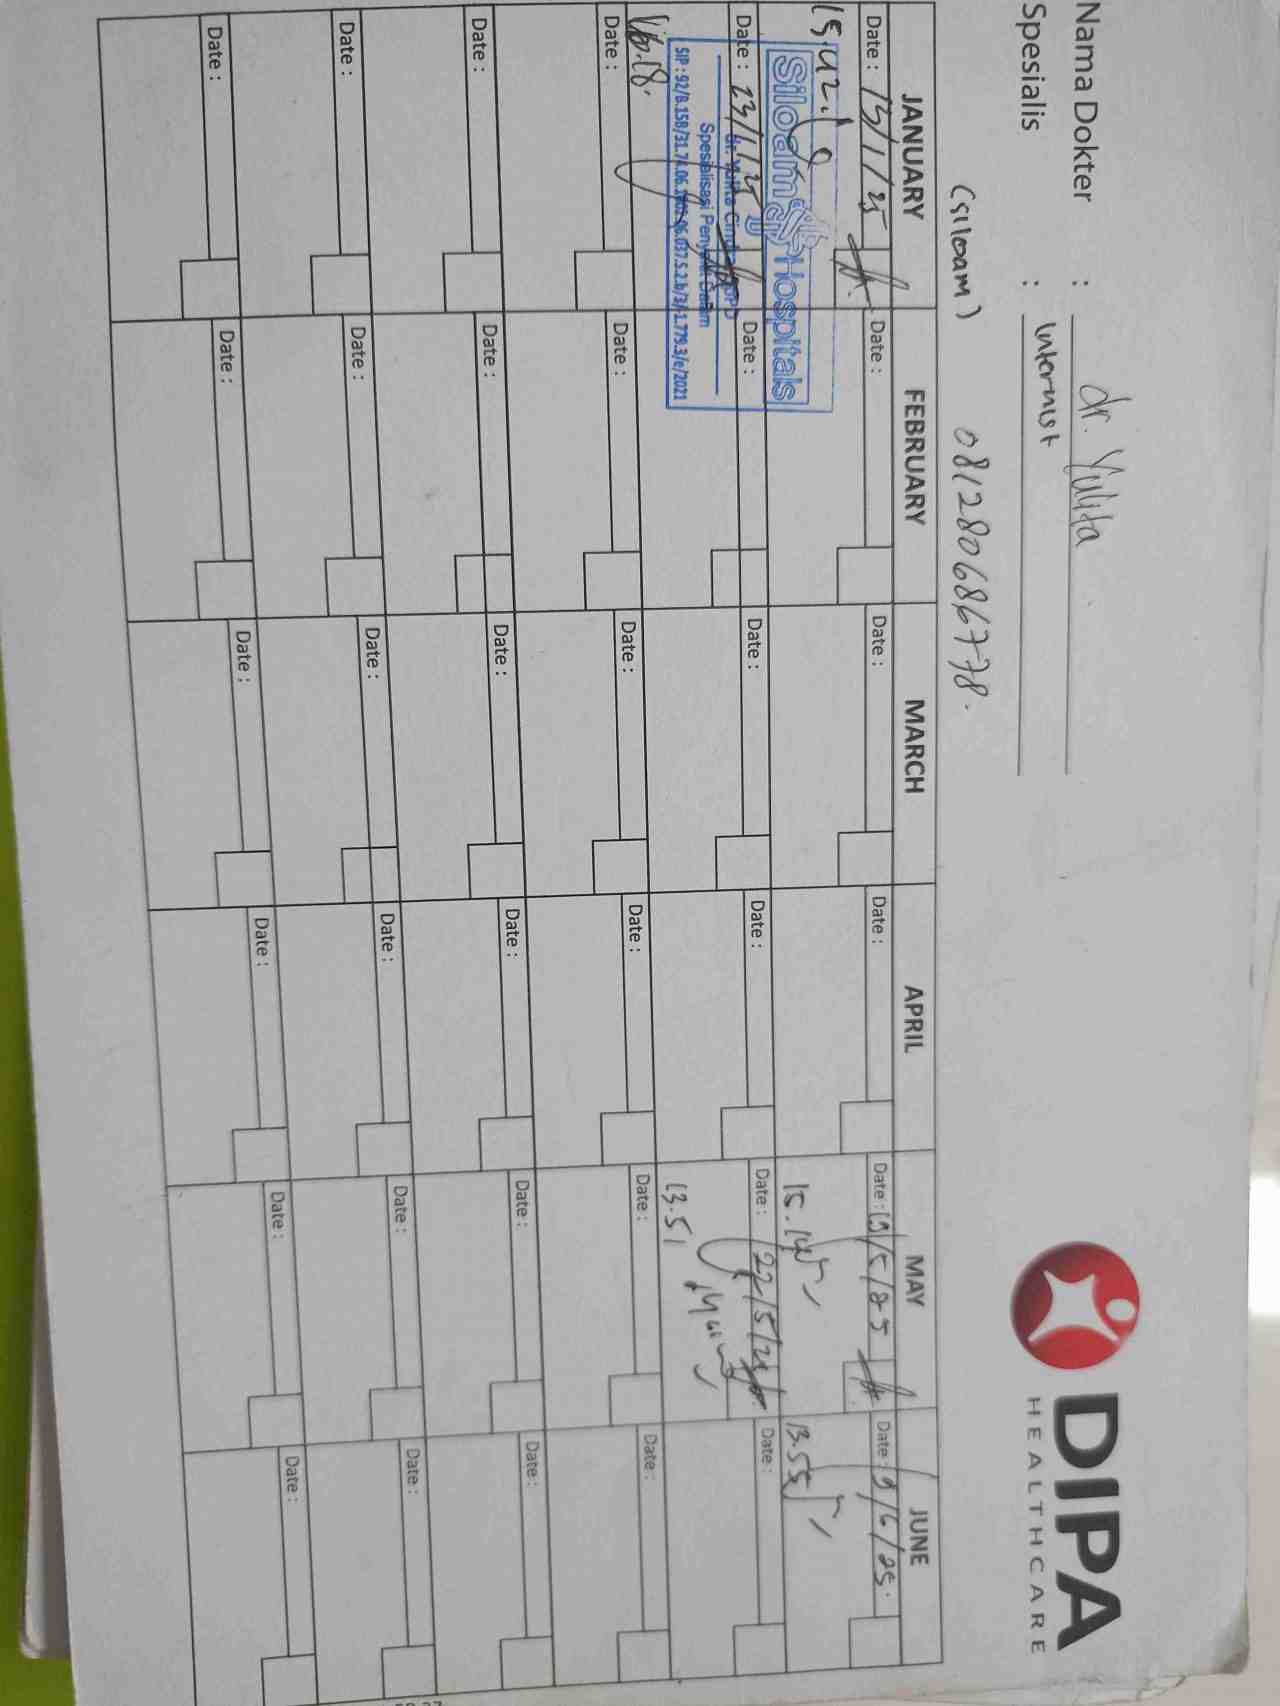 DIPA
HEALTHCARE
Nama Dokter : dr. Yulita
Spesialis : Internist
(Siloam) 081280686778.
JANUARY FEBRUARY MARCH APRIL MAY JUNE
Date : 13/1/25 Date : Date : Date : Date : 19/5/25 Date : 9/6/25
15.42. 15.14 13.55
Siloam Hospitals
Date : 23/1/25 Date : Date : Date : Date : 22/5/25 Date :
dr. Yulita
Spesialisasi Penyakit Dalam
SIP : 92/B.15B/31.74.06.
16.18. 13.51
Date : Date : Date : Date : Date : Date :
Date : Date : Date : Date : Date : Date :
Date : Date : Date : Date : Date : Date :
Date : Date : Date : Date : Date : Date :